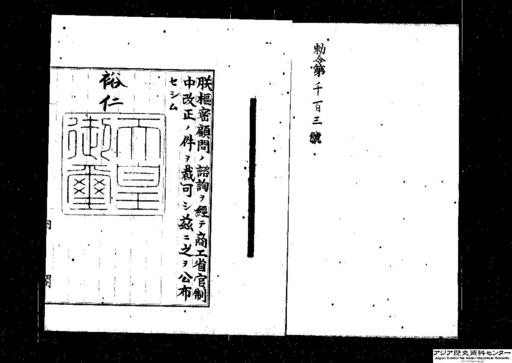 勅令第千百三號
朕樞密顧問ノ諮詢ヲ經テ商工省官制
中改正ノ件ヲ裁可シ茲ニ之ヲ公布
セシム
裕仁
天皇
御璽
内閣
アジア歴史資料センター
Japan Center for Asian Historical Records